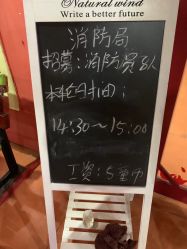 Natural wind
Write a better future
消防局
招募：消防员8人
本轮时间：
14:30～15:00
工资：5童币